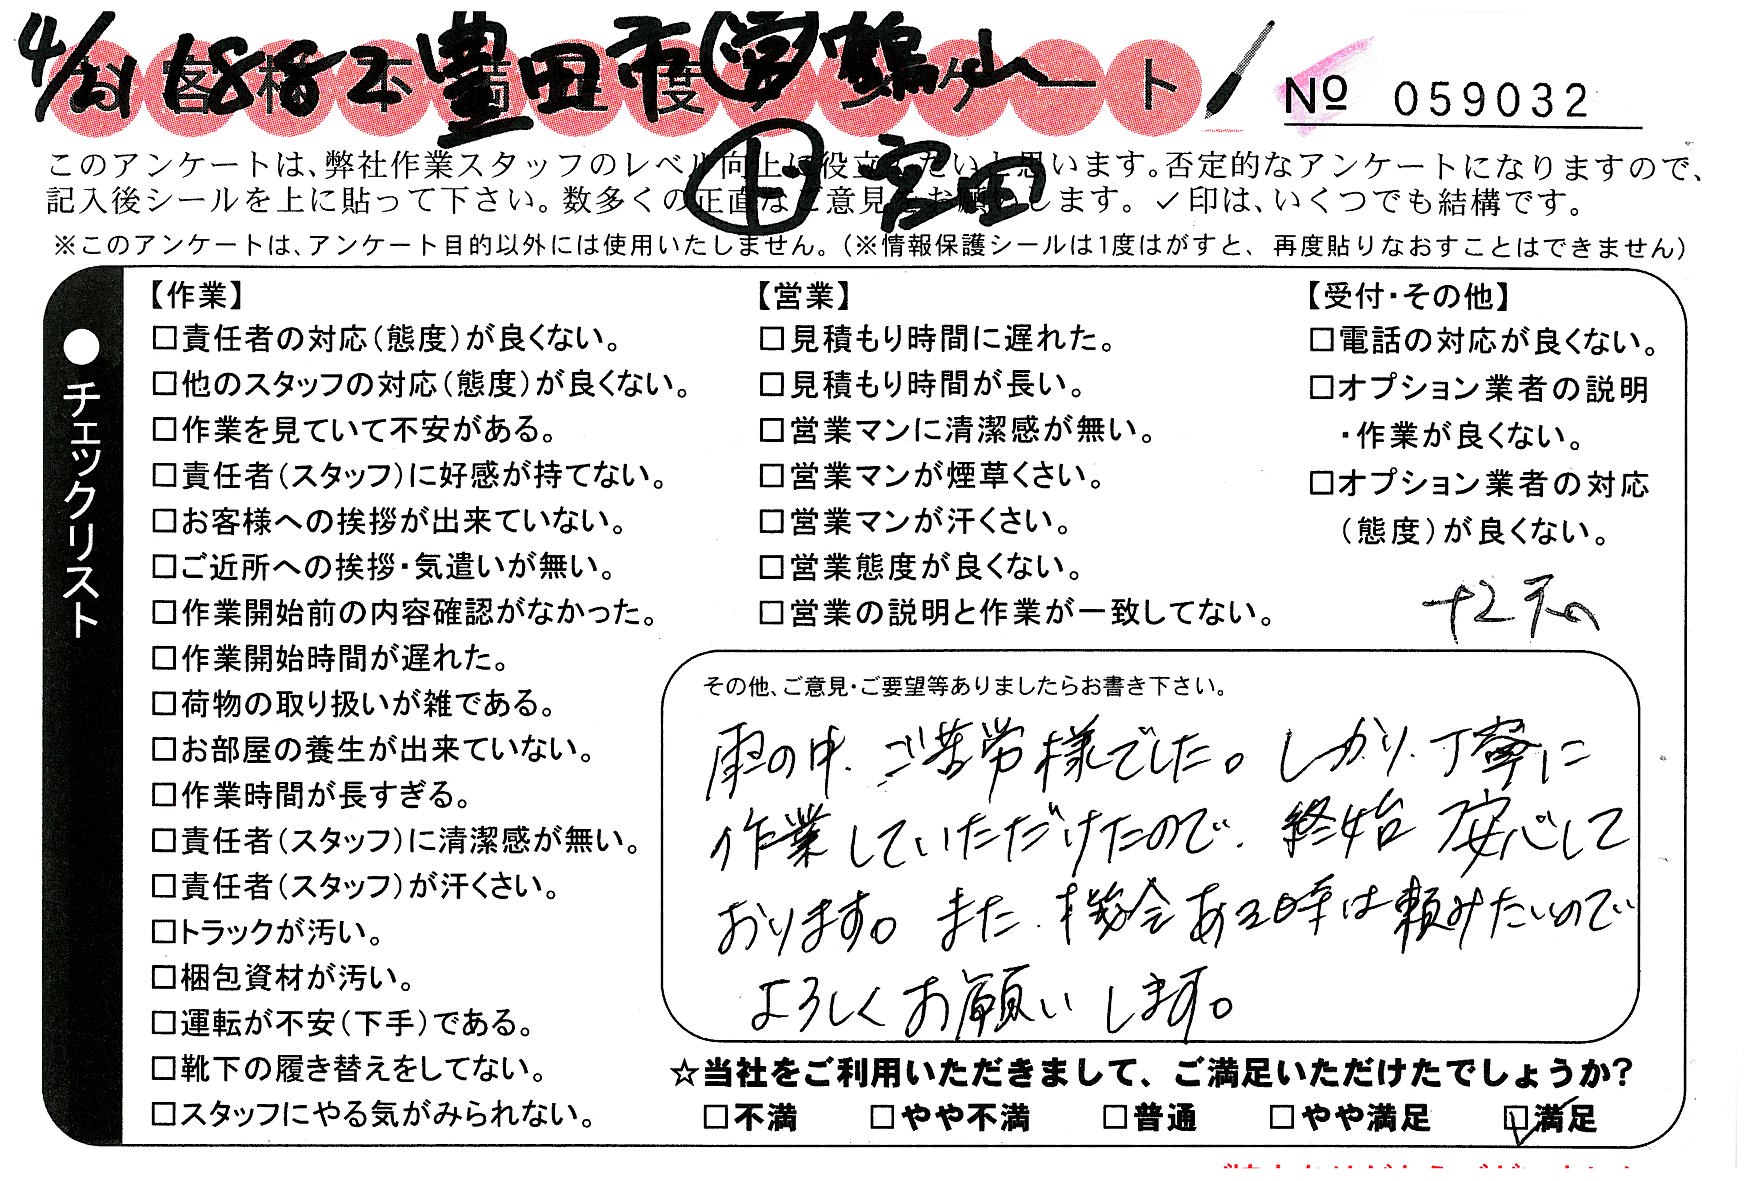 4/21 18882 豊田市 営 鶴山
お客様不満足度アンケート
No 059032
ド 宮田
このアンケートは、弊社作業スタッフのレベル向上に役立てたいと思います。否定的なアンケートになりますので、
記入後シールを上に貼って下さい。数多くの正直なご意見をお願いします。✓印は、いくつでも結構です。
※このアンケートは、アンケート目的以外には使用いたしません。(※情報保護シールは1度はがすと、再度貼りなおすことはできません)
●チェックリスト
【作業】
□責任者の対応(態度)が良くない。
□他のスタッフの対応(態度)が良くない。
□作業を見ていて不安がある。
□責任者(スタッフ)に好感が持てない。
□お客様への挨拶が出来ていない。
□ご近所への挨拶・気遣いが無い。
□作業開始前の内容確認がなかった。
□作業開始時間が遅れた。
□荷物の取り扱いが雑である。
□お部屋の養生が出来ていない。
□作業時間が長すぎる。
□責任者(スタッフ)に清潔感が無い。
□責任者(スタッフ)が汗くさい。
□トラックが汚い。
□梱包資材が汚い。
□運転が不安(下手)である。
□靴下の履き替えをしてない。
□スタッフにやる気がみられない。
【営業】
□見積もり時間に遅れた。
□見積もり時間が長い。
□営業マンに清潔感が無い。
□営業マンが煙草くさい。
□営業マンが汗くさい。
□営業態度が良くない。
□営業の説明と作業が一致してない。
【受付・その他】
□電話の対応が良くない。
□オプション業者の説明
・作業が良くない。
□オプション業者の対応
(態度)が良くない。
その他、ご意見・ご要望等ありましたらお書き下さい。
雨の中、ご苦労様でした。しっかり、丁寧に
作業していただけたので、終始 安心して
おります。また、機会ある時は頼みたいので
よろしくお願いします。
☆当社をご利用いただきまして、ご満足いただけたでしょうか?
□不満 □やや不満 □普通 □やや満足 ☑満足